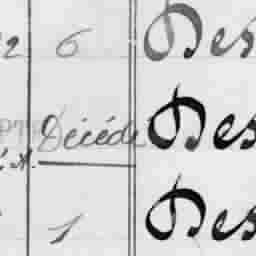 2 6 Des
Décédé Des
1 Des